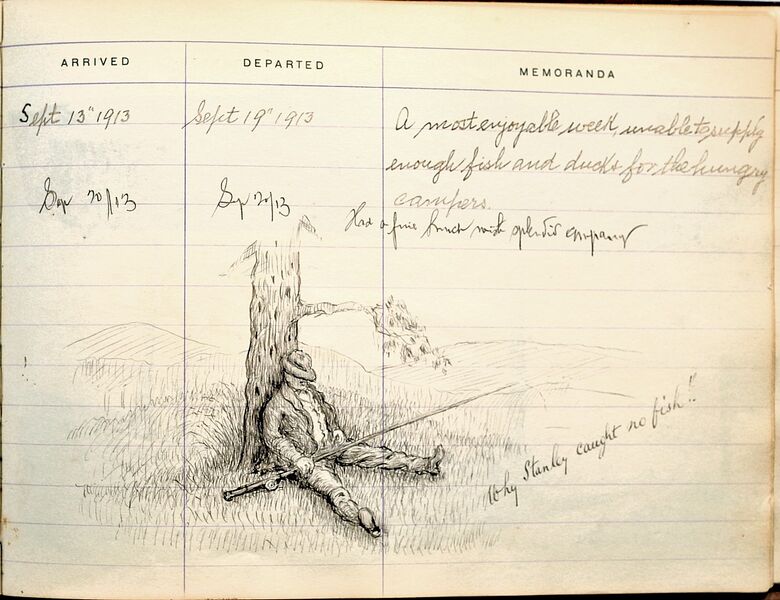 ARRIVED DEPARTED MEMORANDA
Sept 13" 1913 Sept 19" 1913 A most enjoyable week, unable to supply
enough fish and ducks for the hungry
campers.
Sep 20/13 Sep 20/13 Had a fine lunch with splendid company
Why Stanley caught no fish!!